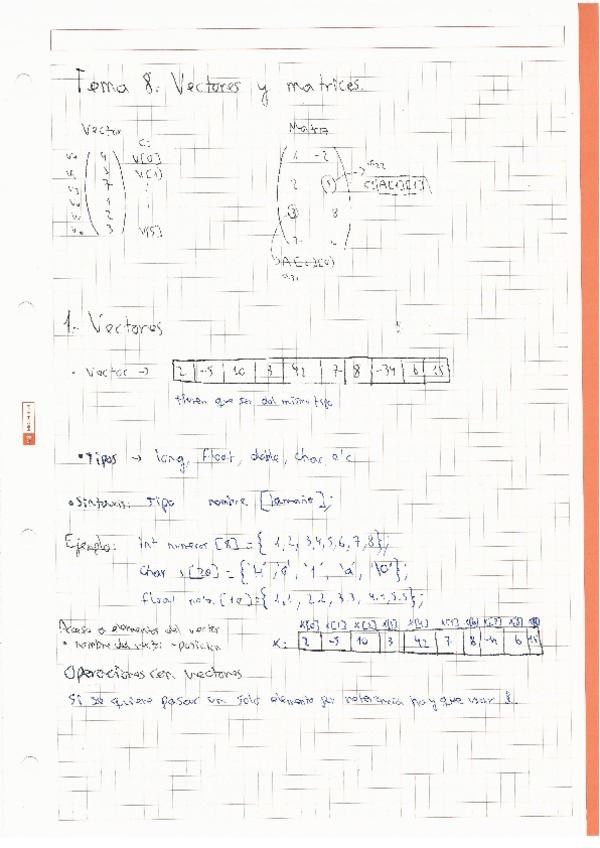 Tema 8. Vectores y matrices.
Vector
C:
V[0]
V[1]
V[5]
4
7
2
3
Matriz
-2
2
8
C: A[1][1]
1.- Vectores
• Vector → 2 -5 10 3 42 7 8 -34 6 15
tienen que ser del mismo tipo
• Tipos → long, float, doble, char, etc
• Sintaxis: Tipo nombre [tamaño];
Ejemplo: int numeros [8] = { 1, 2, 3, 4, 5, 6, 7, 8};
char s[20] = {'H', 'o', 'l', 'a', '\0'};
float nota [10] = { 1.1, 2.2, 3.3, 4.4, 5.5};
Acceso a elementos del vector
x[0] x[1] x[2] x[3] x[4] x[5] x[6] x[7] x[8]
x: 2 -5 10 3 42 7 8 -34 6 15
Operaciones con vectores
Si se quiere pasar un solo elemento por referencia hay que usar &.